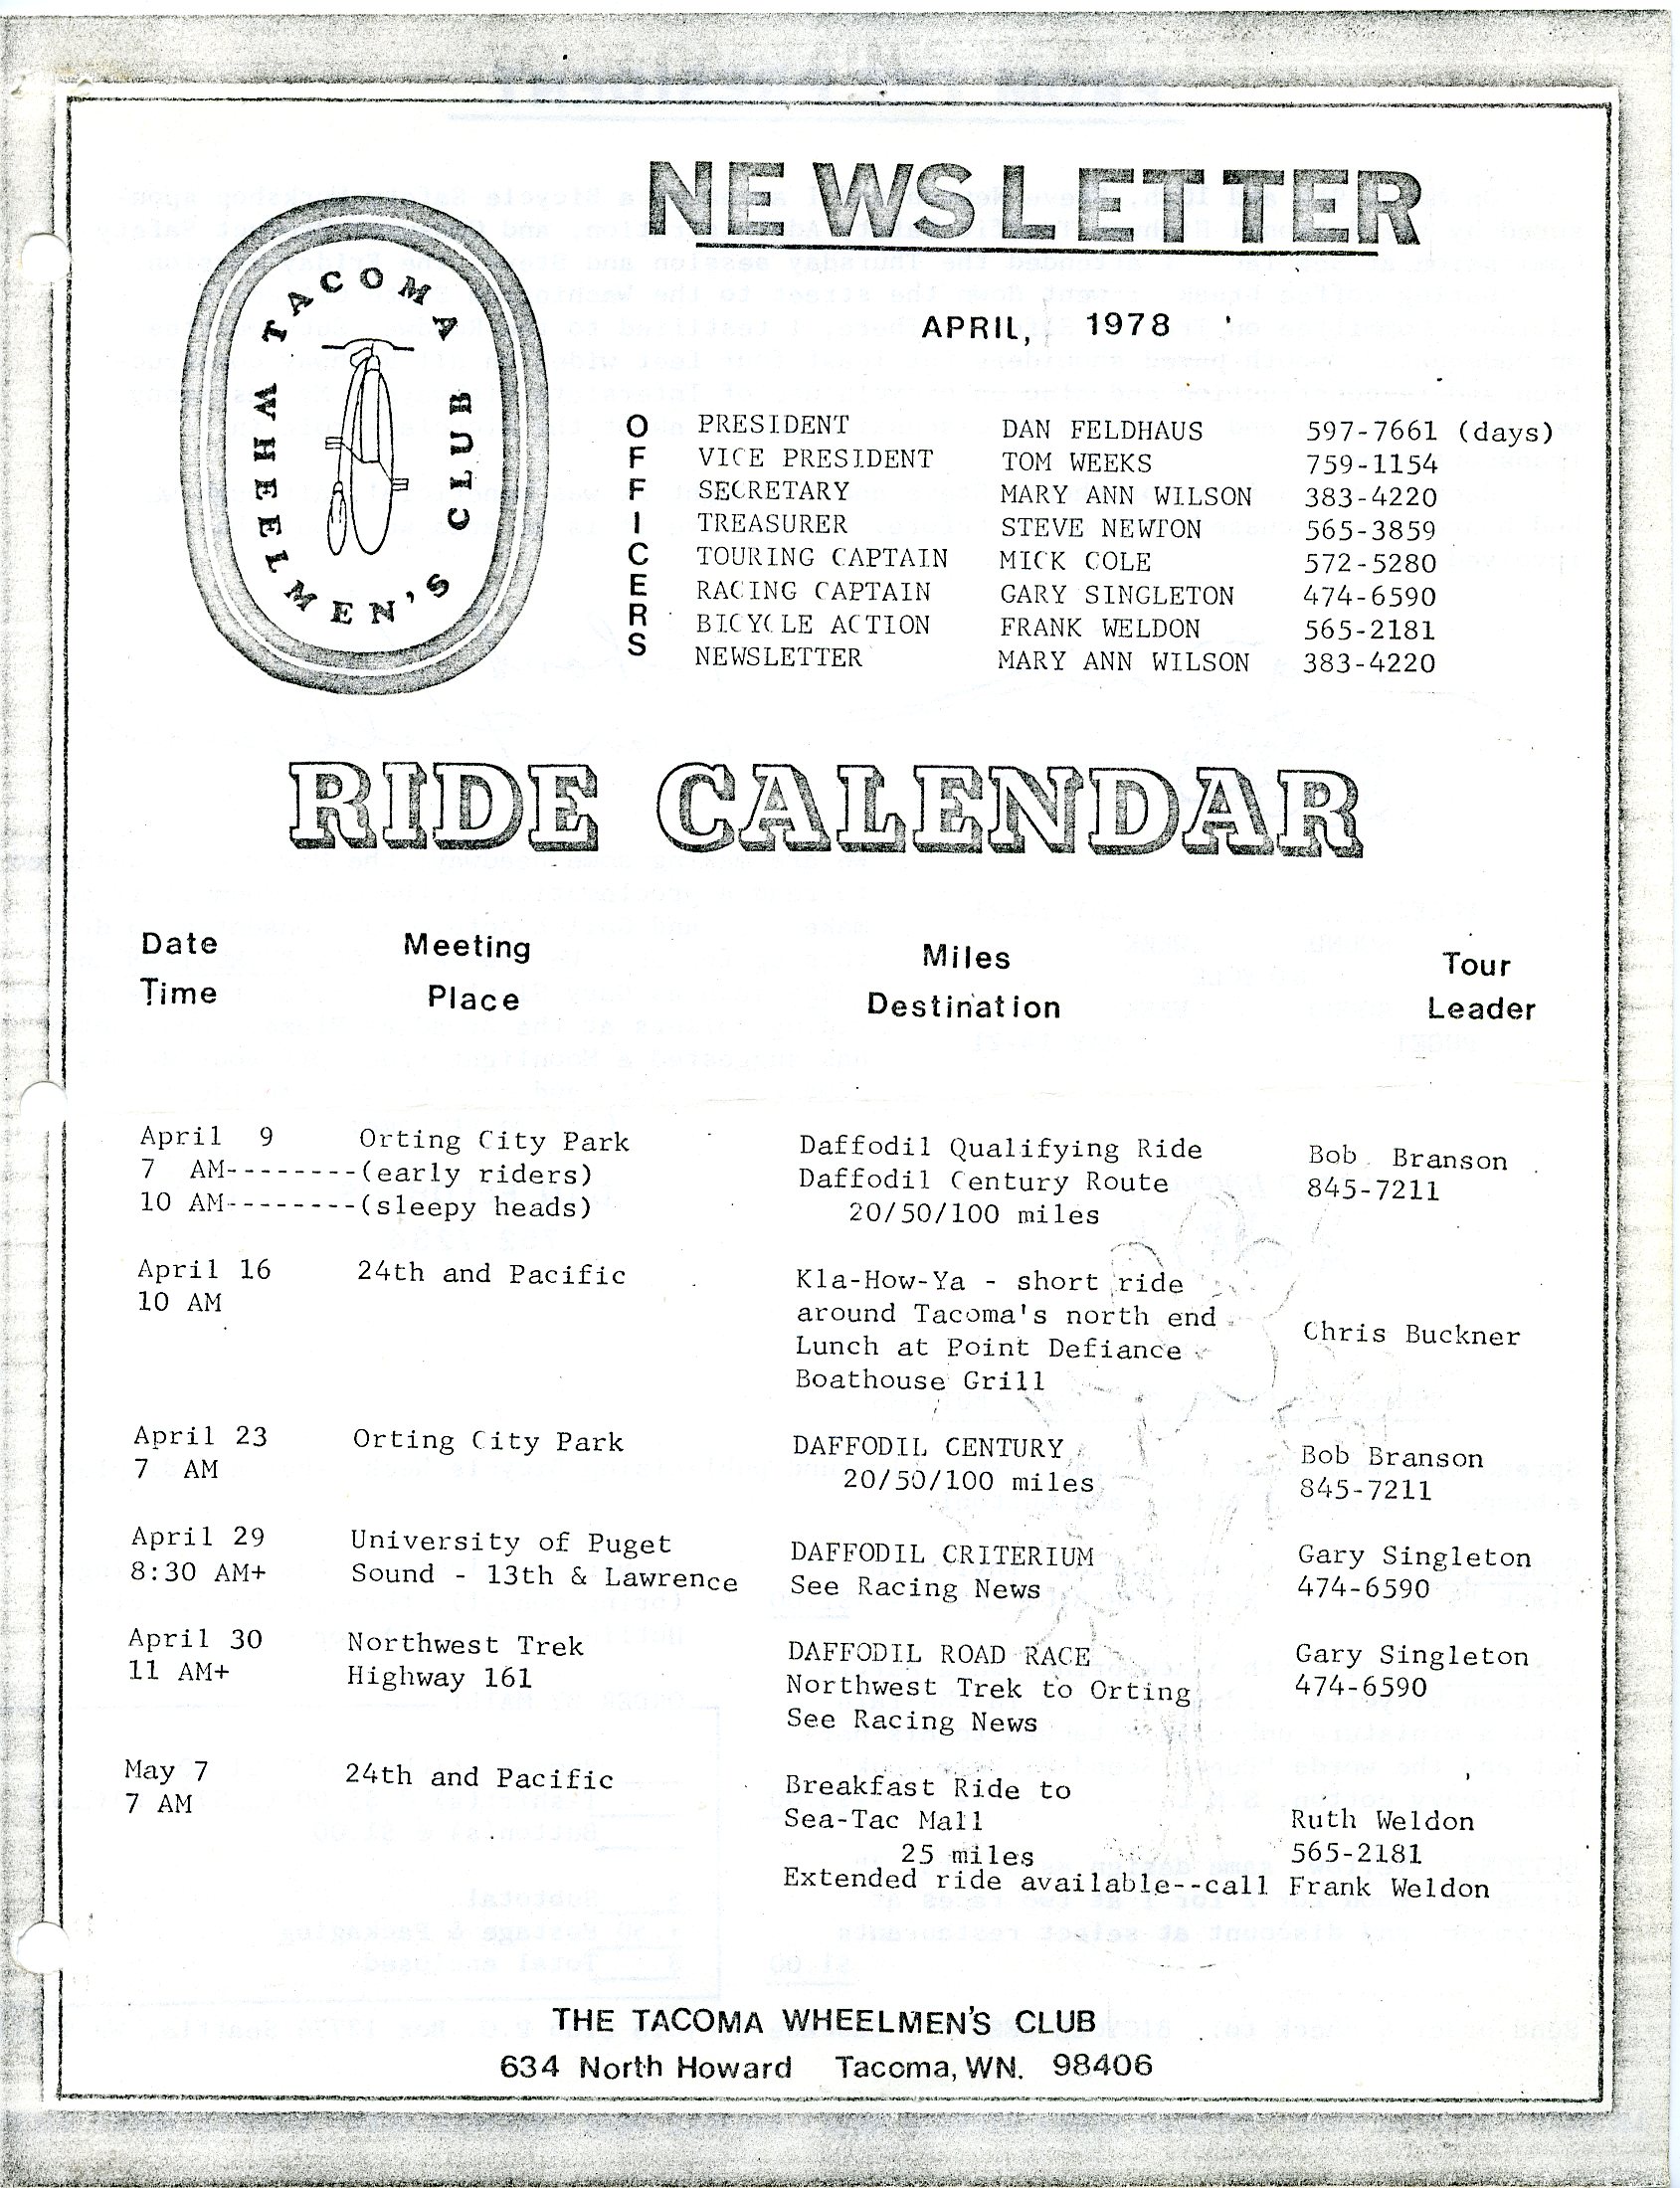 NEWSLETTER
TACOMA WHEELMEN'S CLUB
APRIL, 1978
OFFICERS
PRESIDENT DAN FELDHAUS 597-7661 (days)
VICE PRESIDENT TOM WEEKS 759-1154
SECRETARY MARY ANN WILSON 383-4220
TREASURER STEVE NEWTON 565-3859
TOURING CAPTAIN MICK COLE 572-5280
RACING CAPTAIN GARY SINGLETON 474-6590
BICYCLE ACTION FRANK WELDON 565-2181
NEWSLETTER MARY ANN WILSON 383-4220
RIDE CALENDAR
Date Meeting Miles Tour
Time Place Destination Leader
April 9 Orting City Park Daffodil Qualifying Ride Bob Branson
7 AM--------(early riders) Daffodil Century Route 845-7211
10 AM--------(sleepy heads) 20/50/100 miles
April 16 24th and Pacific Kla-How-Ya - short ride
10 AM around Tacoma's north end
Lunch at Point Defiance Chris Buckner
Boathouse Grill
April 23 Orting City Park DAFFODIL CENTURY Bob Branson
7 AM 20/50/100 miles 845-7211
April 29 University of Puget DAFFODIL CRITERIUM Gary Singleton
8:30 AM+ Sound - 13th & Lawrence See Racing News 474-6590
April 30 Northwest Trek DAFFODIL ROAD RACE Gary Singleton
11 AM+ Highway 161 Northwest Trek to Orting 474-6590
See Racing News
May 7 24th and Pacific Breakfast Ride to
7 AM Sea-Tac Mall Ruth Weldon
25 miles 565-2181
Extended ride available--call Frank Weldon
THE TACOMA WHEELMEN'S CLUB
634 North Howard Tacoma, WN. 98406